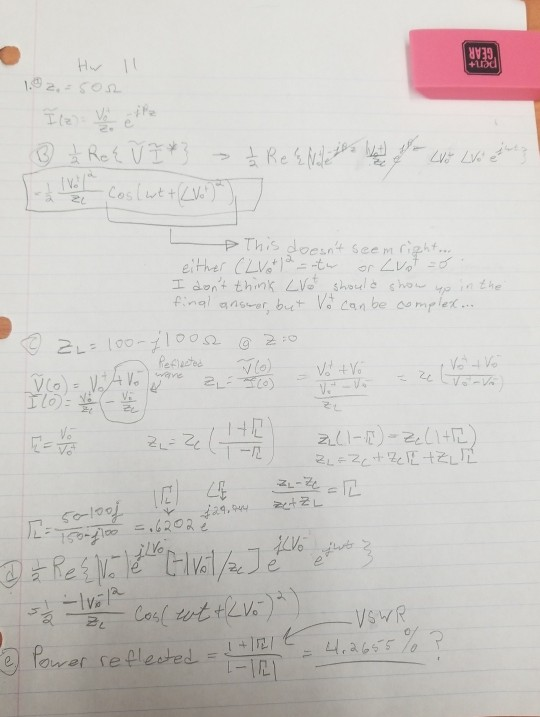 Hw 11
pen+ GEAR
1. a Z₀ = 50Ω
Ĩ(z) = V₀⁺/Z₀ e^-jβz
B ½ Re{ṼĨ*} → ½ Re{|V₀⁺|e^-jβz |V₀⁺|/Zc e^jβz ∠V₀⁺ ∠V₀⁺ e^jwt}
= ½ |V₀⁺|²/Zc Cos(wt+(∠V₀⁺)²)
This doesn't seem right...
either (∠V₀⁺)² = -tw or ∠V₀⁺ = 0
I don't think ∠V₀⁺ should show up in the
final answer, but V₀⁺ can be complex...
C Z_L = 100-j100Ω @ z=0
Reflected wave
Ṽ(0) = V₀⁺ + V₀⁻ Z_L = Ṽ(0)/Ĩ(0) = (V₀⁺+V₀⁻)/((V₀⁺-V₀⁻)/Zc) = Zc((V₀⁺+V₀⁻)/(V₀⁺-V₀⁻))
Ĩ(0) = V₀⁺/Zc - V₀⁻/Zc
Γ_L = V₀⁻/V₀⁺ Z_L = Zc((1+Γ_L)/(1-Γ_L)) Z_L(1-Γ_L) = Zc(1+Γ_L)
Z_L = Zc + ZcΓ_L + Z_LΓ_L
|Γ_L| ∠Γ_L (Z_L-Zc)/(Zc+Z_L) = Γ_L
Γ_L = (50-100j)/(150-j100) = .6202 e^j29.744
d ½ Re{|V₀⁻|e^j∠V₀⁻ [-|V₀⁻|/Zc] e^j∠V₀⁻ e^jwt}
= ½ -|V₀⁻|²/Zc Cos(wt+(∠V₀⁻)²)
VSWR
e Power reflected = (1+|Γ_L|)/(1-|Γ_L|) = 4.2655% ?